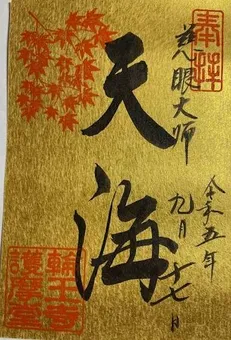 奉拝
慈眼大師
天海
令和五年
九月十七日
輪王寺
護摩堂